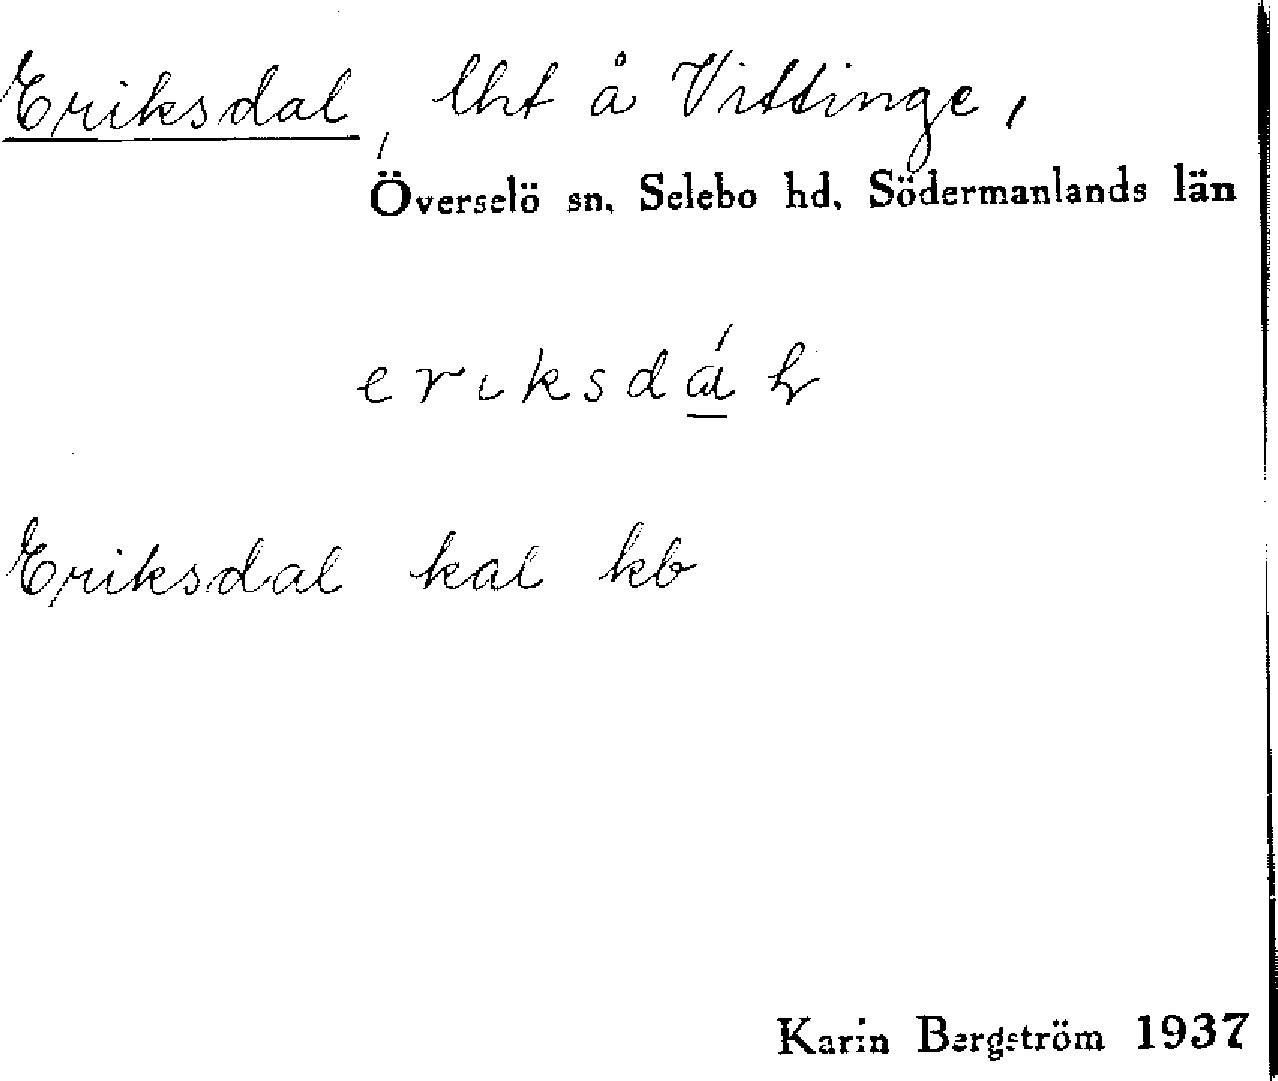 Eriksdal, lht å Vittinge,
Överselö sn. Selebo hd. Södermanlands län
Eriksdal kal kb
Karin Bergström 1937